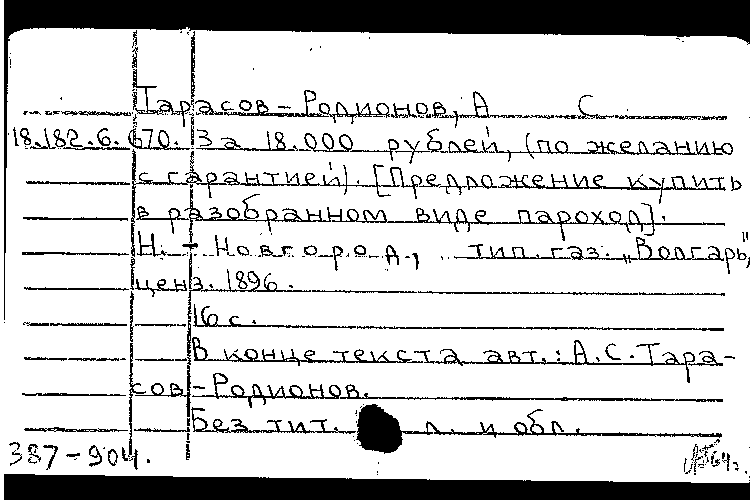 Тарасов-Родионов, А С.
18.182.6.670. За 18.000 рублей, (по желанию
с гарантией). [Предложение купить
в разобранном виде пароход].
Н.-Новгород, тип. газ. „Волгарь",
ценз. 1896.
16 с.
В конце текста авт.: А.С.Тара-
сов-Родионов.
Без тит. л. и обл.
387-904.